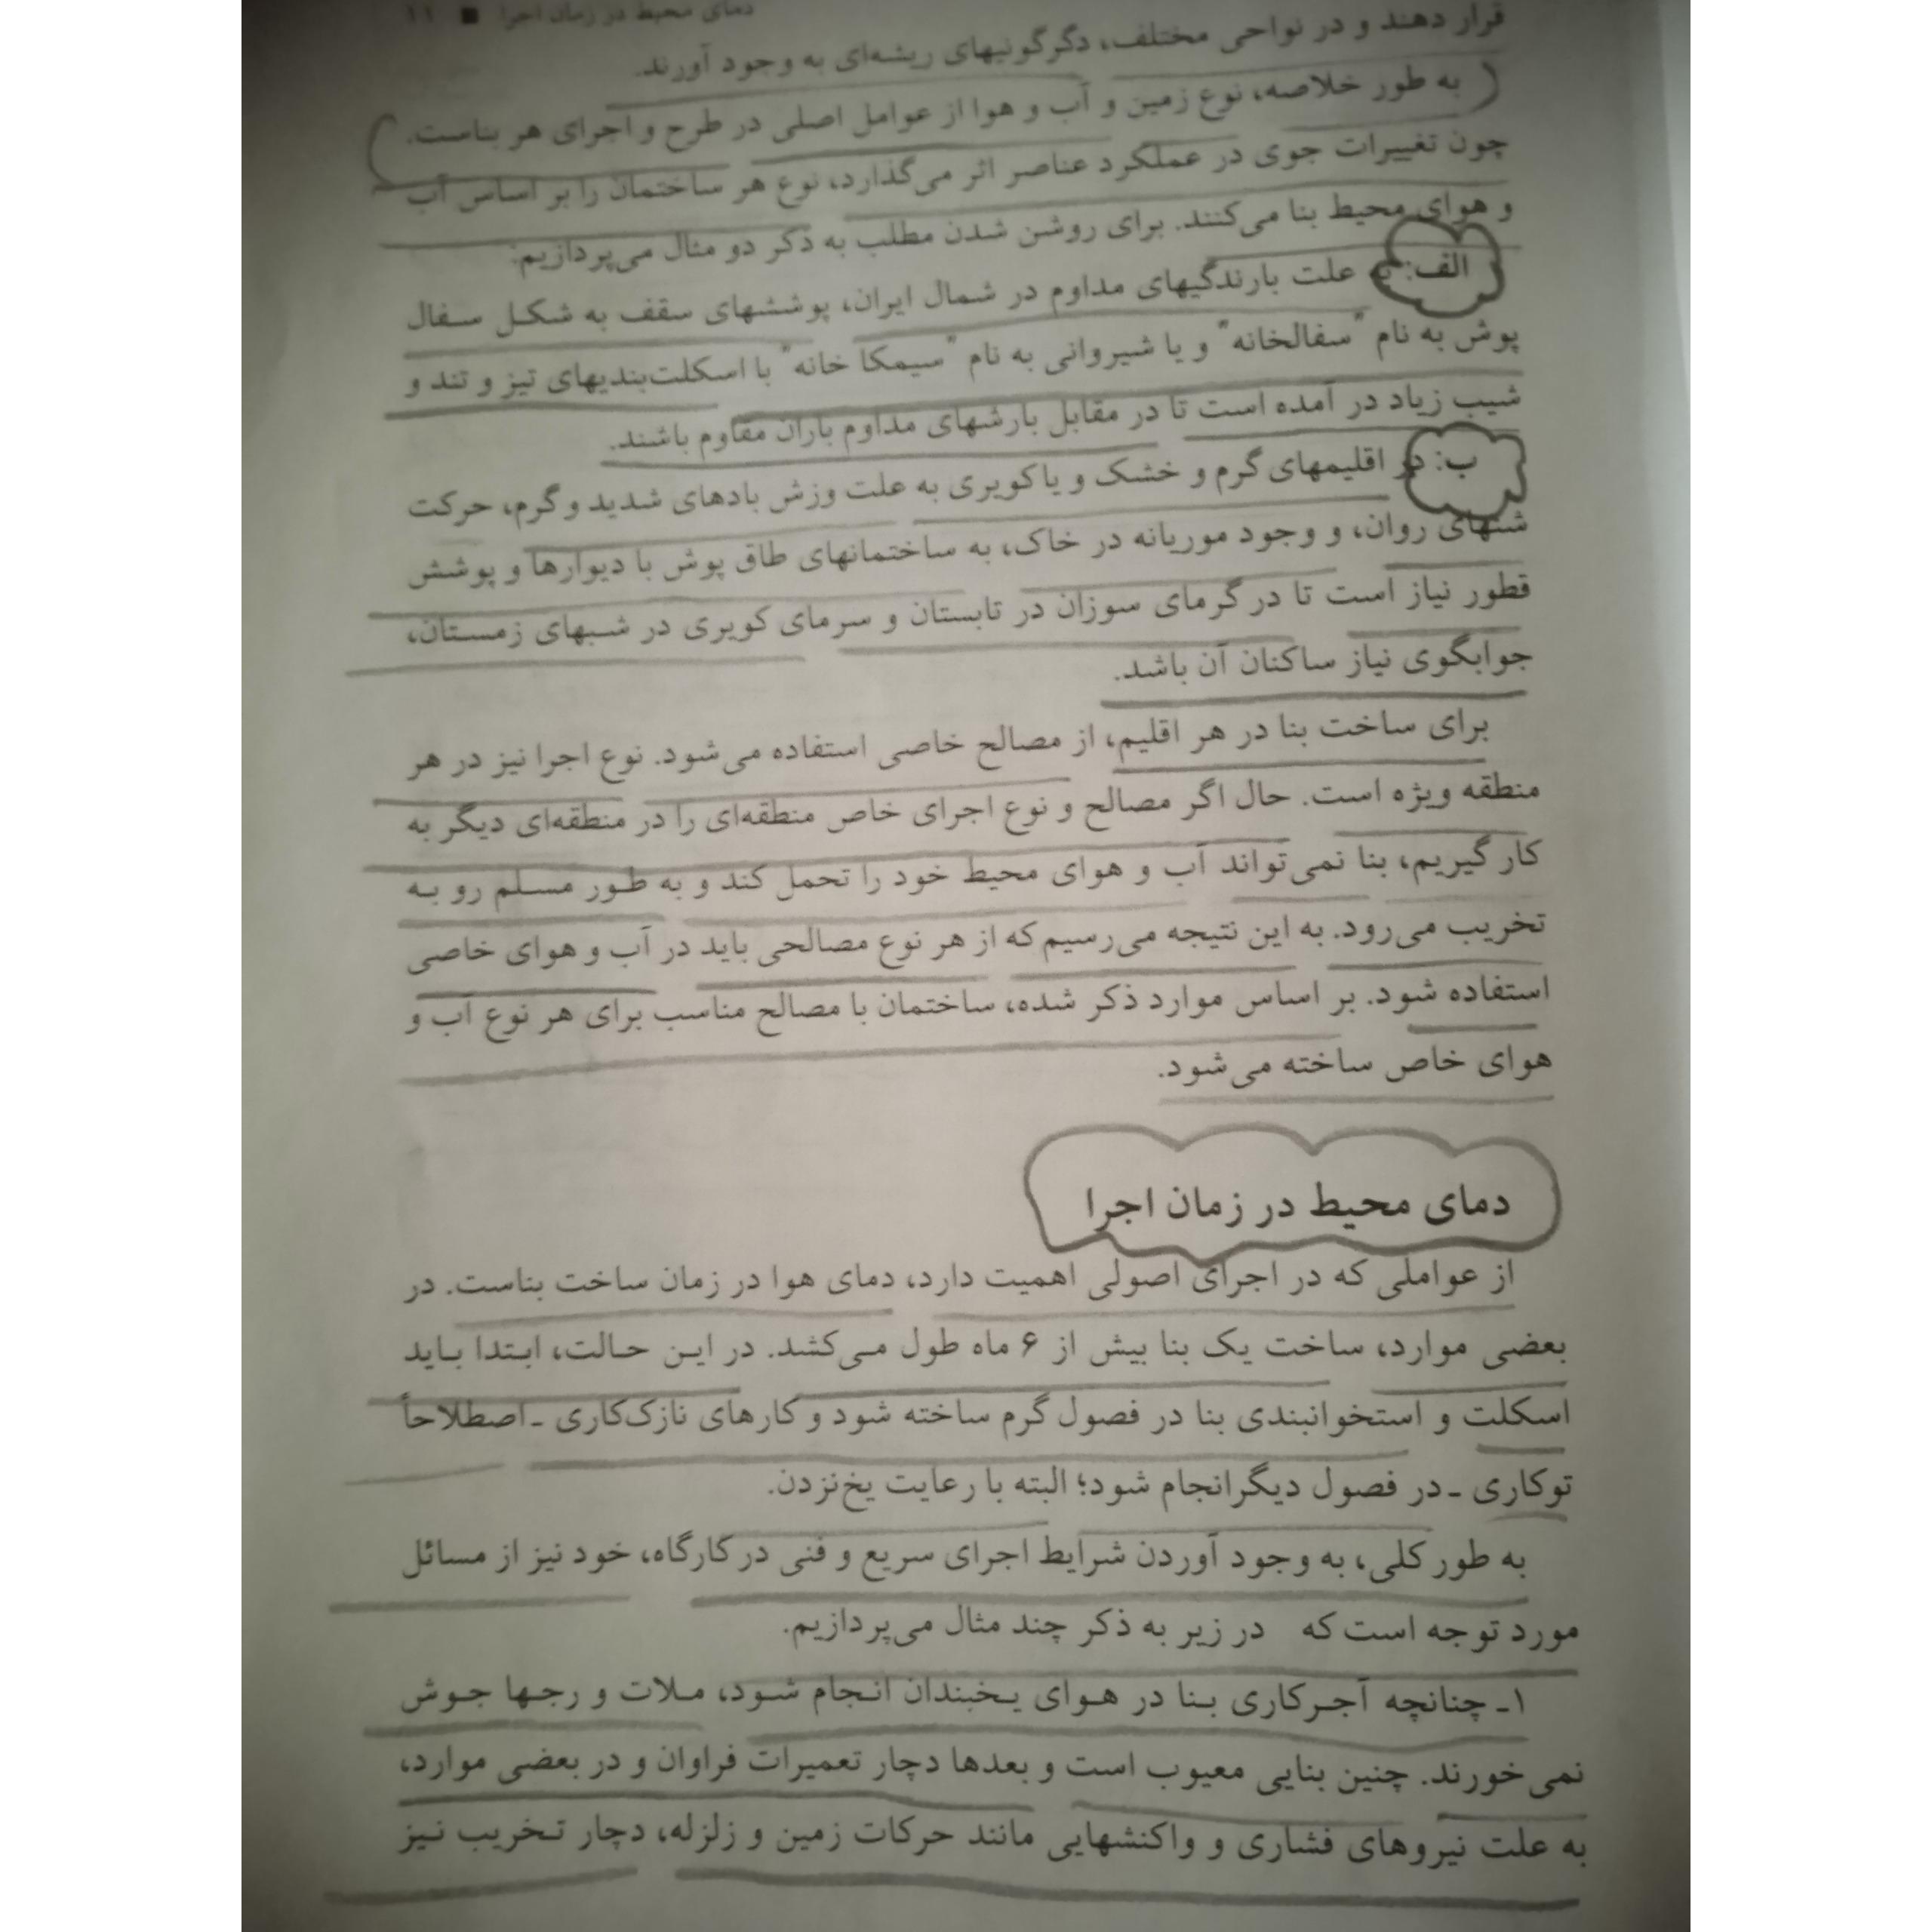 دمای محیط در زمان اجرا ■ ۱۱
قرار دهند و در نواحی مختلف، دگرگونیهای ریشه‌ای به وجود آورند.
به طور خلاصه، نوع زمین و آب و هوا از عوامل اصلی در طرح و اجرای هر بناست.
چون تغییرات جوی در عملکرد عناصر اثر می‌گذارد، نوع هر ساختمان را بر اساس آب
و هوای محیط بنا می‌کنند. برای روشن شدن مطلب به ذکر دو مثال می‌پردازیم:
الف: به علت بارندگیهای مداوم در شمال ایران، پوششهای سقف به شکل سفال
پوش به نام "سفالخانه" و یا شیروانی به نام "سیمکا خانه" با اسکلت‌بندیهای تیز و تند و
شیب زیاد در آمده است تا در مقابل بارشهای مداوم باران مقاوم باشند.
ب: در اقلیمهای گرم و خشک و یا کویری به علت وزش بادهای شدید و گرم، حرکت
شنهای روان، و وجود موریانه در خاک، به ساختمانهای طاق پوش با دیوارها و پوشش
قطور نیاز است تا در گرمای سوزان در تابستان و سرمای کویری در شبهای زمستان،
جوابگوی نیاز ساکنان آن باشد.
برای ساخت بنا در هر اقلیم، از مصالح خاصی استفاده می‌شود. نوع اجرا نیز در هر
منطقه ویژه است. حال اگر مصالح و نوع اجرای خاص منطقه‌ای را در منطقه‌ای دیگر به
کار گیریم، بنا نمی‌تواند آب و هوای محیط خود را تحمل کند و به طور مسلم رو به
تخریب می‌رود. به این نتیجه می‌رسیم که از هر نوع مصالحی باید در آب و هوای خاصی
استفاده شود. بر اساس موارد ذکر شده، ساختمان با مصالح مناسب برای هر نوع آب و
هوای خاص ساخته می‌شود.
دمای محیط در زمان اجرا
از عواملی که در اجرای اصولی اهمیت دارد، دمای هوا در زمان ساخت بناست. در
بعضی موارد، ساخت یک بنا بیش از ۶ ماه طول می‌کشد. در این حالت، ابتدا باید
اسکلت و استخوانبندی بنا در فصول گرم ساخته شود و کارهای نازک‌کاری ـ اصطلاحاً
توکاری ـ در فصول دیگر انجام شود؛ البته با رعایت یخ‌نزدن.
به طور کلی، به وجود آوردن شرایط اجرای سریع و فنی در کارگاه، خود نیز از مسائل
مورد توجه است که در زیر به ذکر چند مثال می‌پردازیم.
۱ـ چنانچه آجرکاری بنا در هوای یخبندان انجام شود، ملات و رجها جوش
نمی‌خورند. چنین بنایی معیوب است و بعدها دچار تعمیرات فراوان و در بعضی موارد،
به علت نیروهای فشاری و واکنشهایی مانند حرکات زمین و زلزله، دچار تخریب نیز